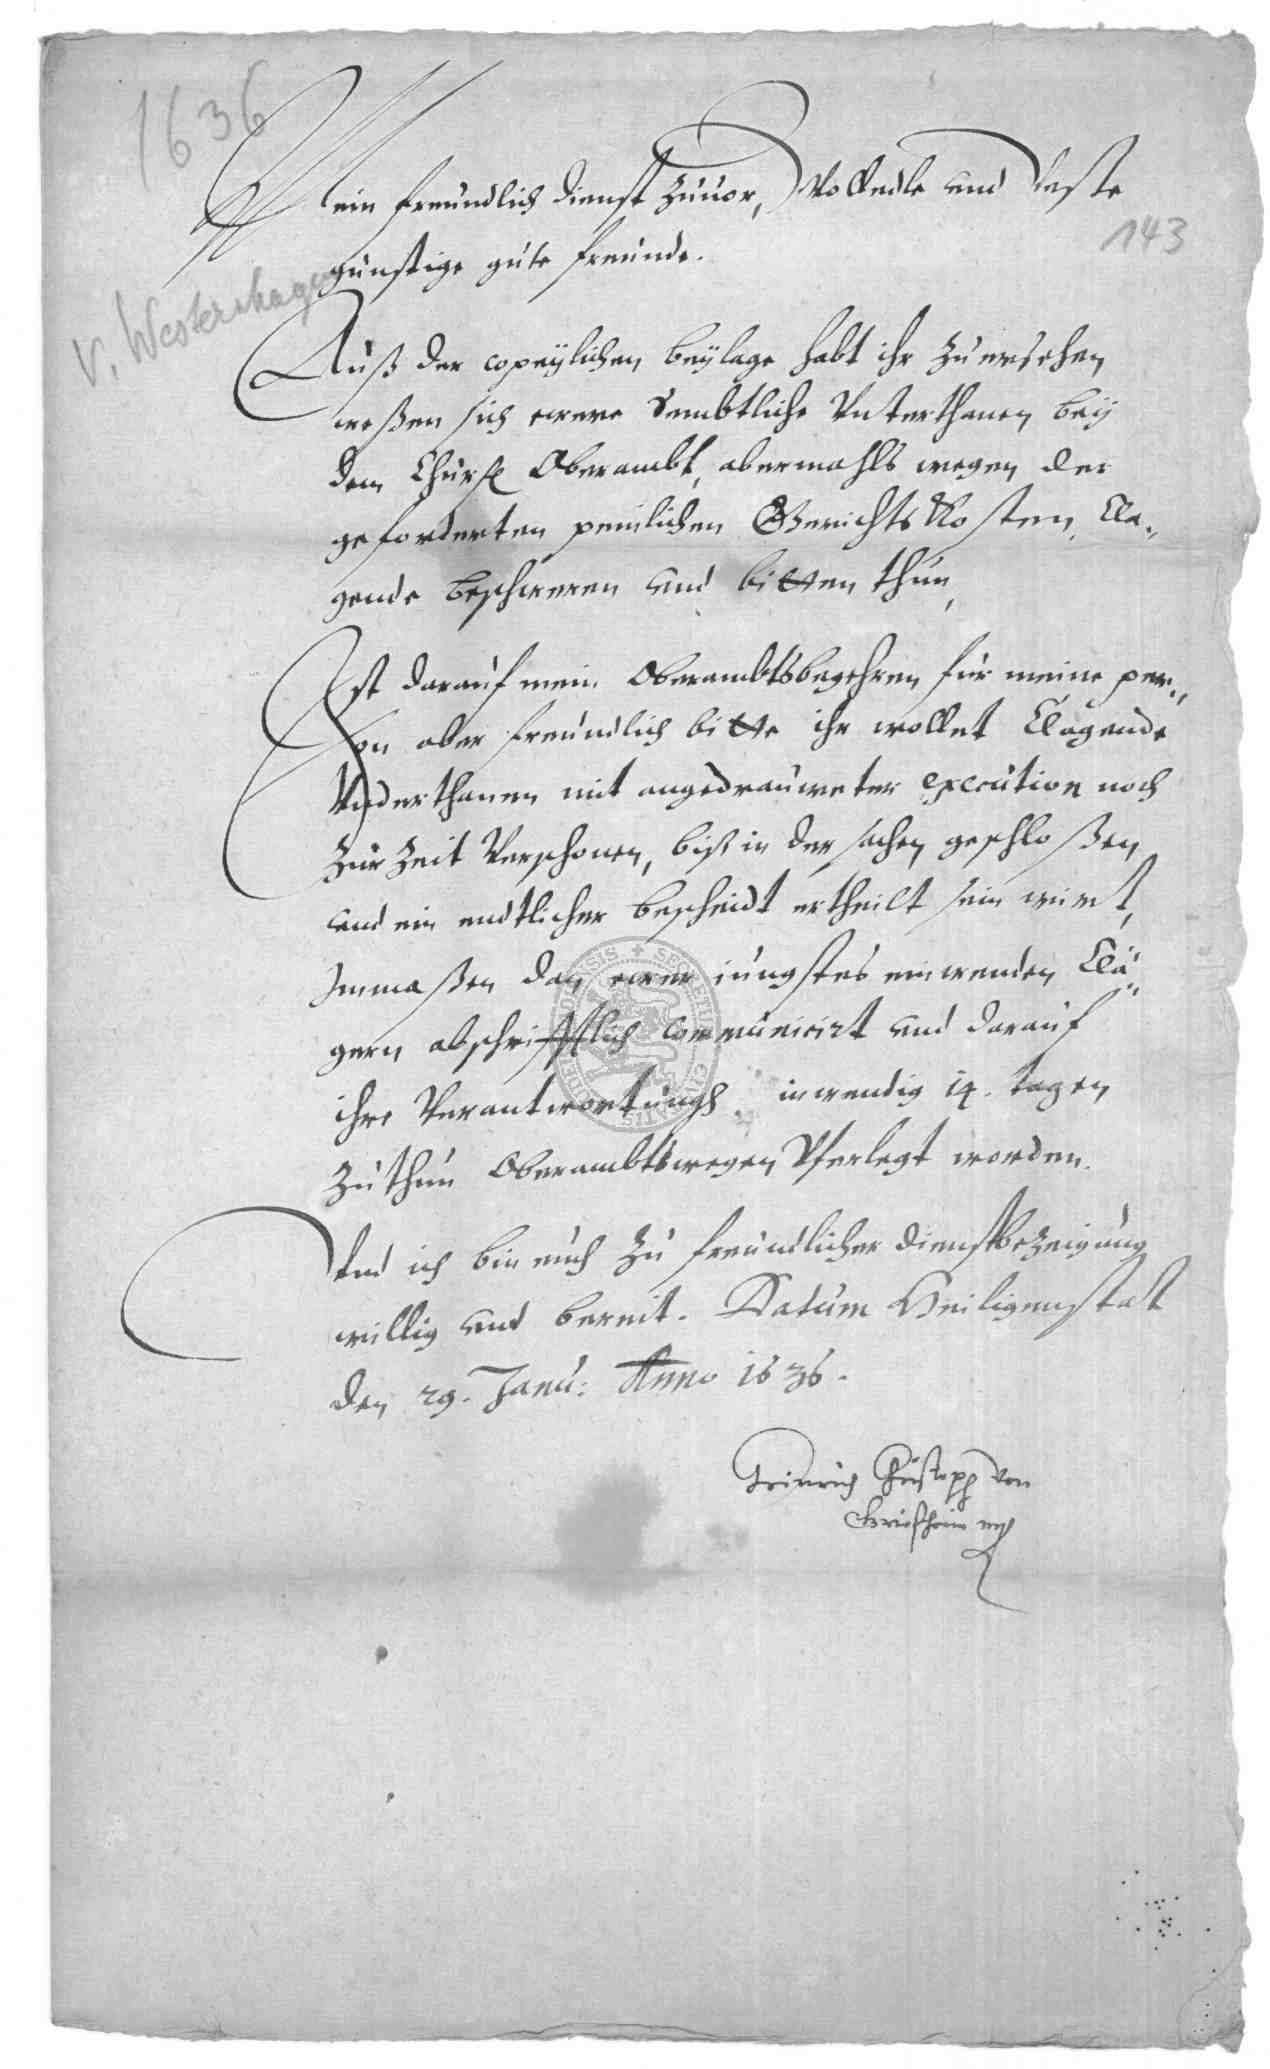 1636
143
v. Westernhagen
Mein freundlich dienst zuuor, WollEdle und Veste
günstige gute freunde.
Auß der copeylichen beylage habt ihr zu ersehen
weßen sich ewere Sembtliche Unterthanen bey
dem Churf. Oberambt, abermahls wegen der
geforderten peinlichen GerichtsKosten, Cla-
gende beschweren und bitten thun,
Ist darauf mein Oberambtsbegehren für meine per-
son aber freundlich bitte ihr wollet Clagende
Underthanen mit angedrauweter execution noch
zur Zeit Verschonen, biß in der sachen geschloßen
und ein endtlicher bescheidt ertheilt sein wirt,
Inmaßen dan ewer iüngstes einwenden Clä-
gern abschrifftlich communicirt und darauf
ihre Verantwortungh inwendig 14. tagen
zu thun Oberambtswegen Uferlegt worden.
Und ich bin euch zu freundlicher dienstbezeigung
willig und bereit. Datum Heiligenstatt
den 29. Janu: Anno 1636.
Heinrich Christoph von
Griesheim